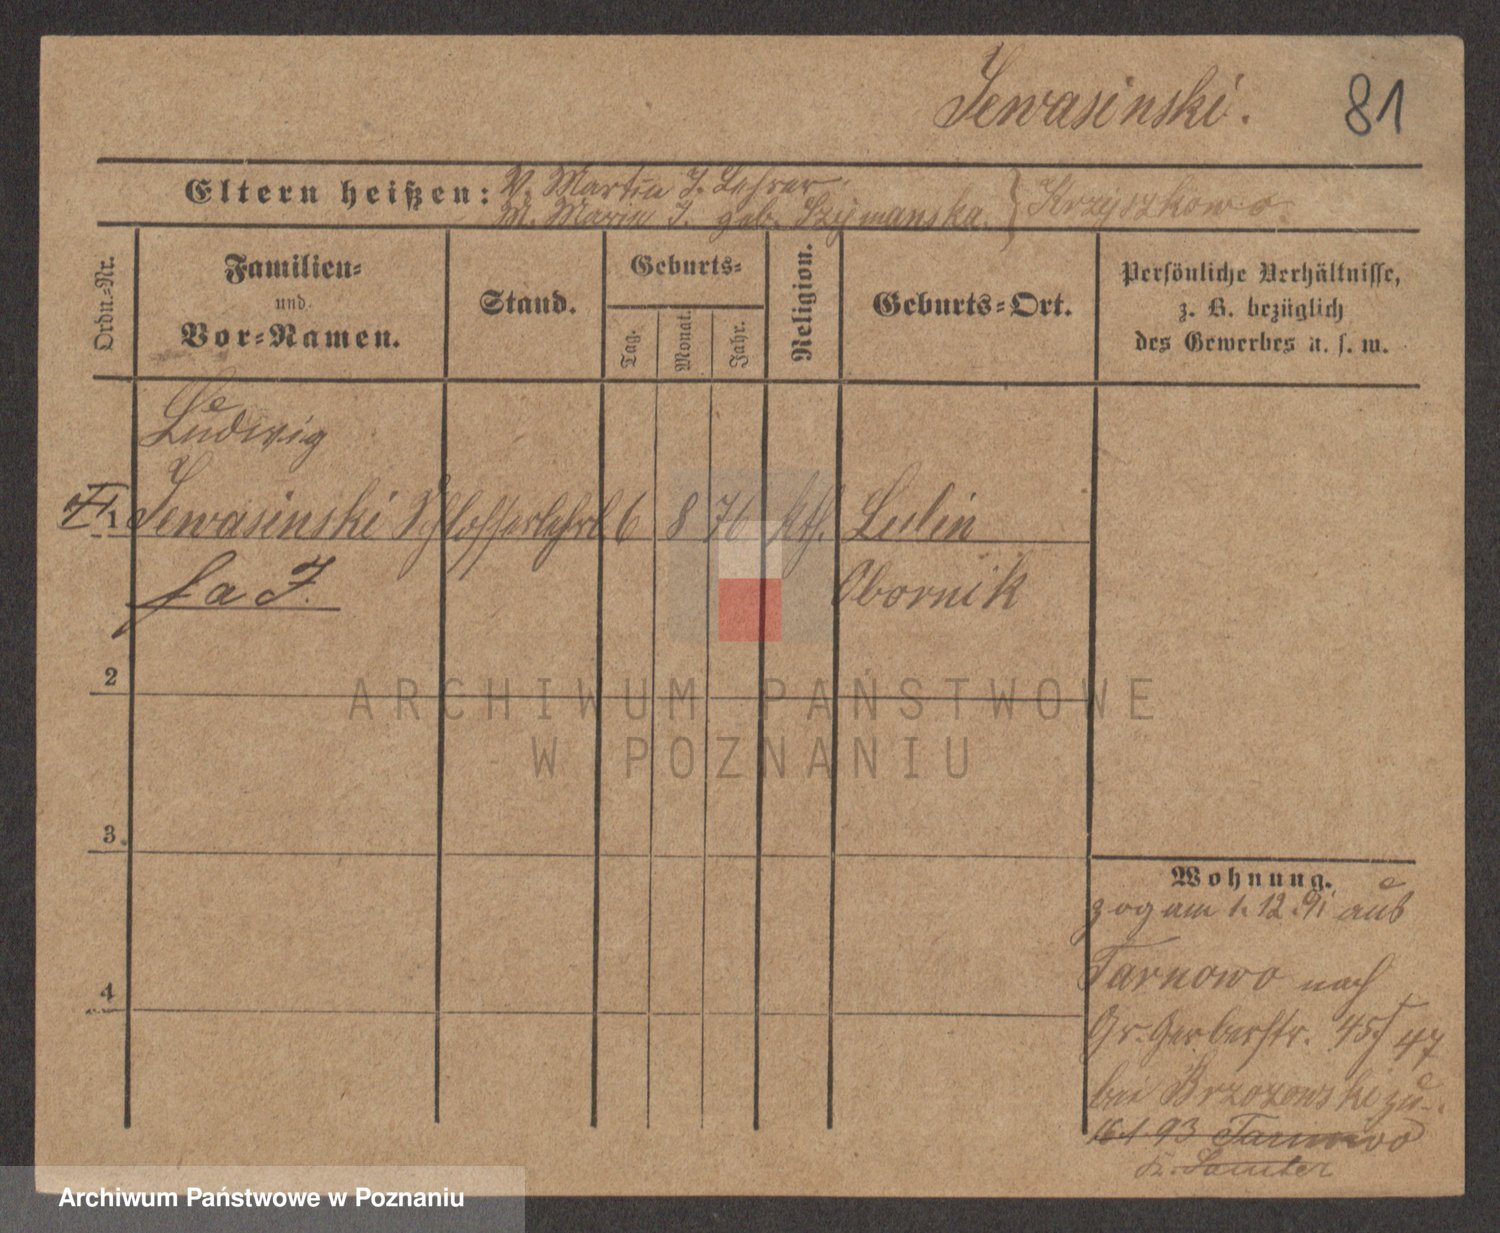 Jewasinski.
81
Eltern heißen: V. Martin J. Lehrer.
M. Marie J. geb. Szymanska. } Krzyszkowo.
Ordn.-Nr.
Familien-
und
Vor-Namen.
Stand.
Geburts-
Tag.
Monat.
Jahr.
Religion.
Geburts-Ort.
Persönliche Verhältnisse,
z. B. bezüglich
des Gewerbes u. s. w.
Ludwig
1 Jewasinski Schlosserlehrl 6 8 76 kth. Lulin
fa J. Obornik
2
3
4
Wohnung.
zog am 1.12.91 aus
Tarnowo nach
Gr. Gerberstr. 45/47
bei Brzozowski zu.
16 1 93 Tarnowo
Kr. Samter
ARCHIWUM PAŃSTWOWE
W POZNANIU
Archiwum Państwowe w Poznaniu